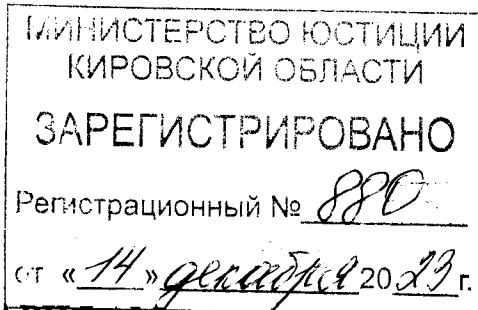 МИНИСТЕРСТВО ЮСТИЦИИ
КИРОВСКОЙ ОБЛАСТИ
ЗАРЕГИСТРИРОВАНО
Регистрационный № 880
от «14» декабря 2023 г.